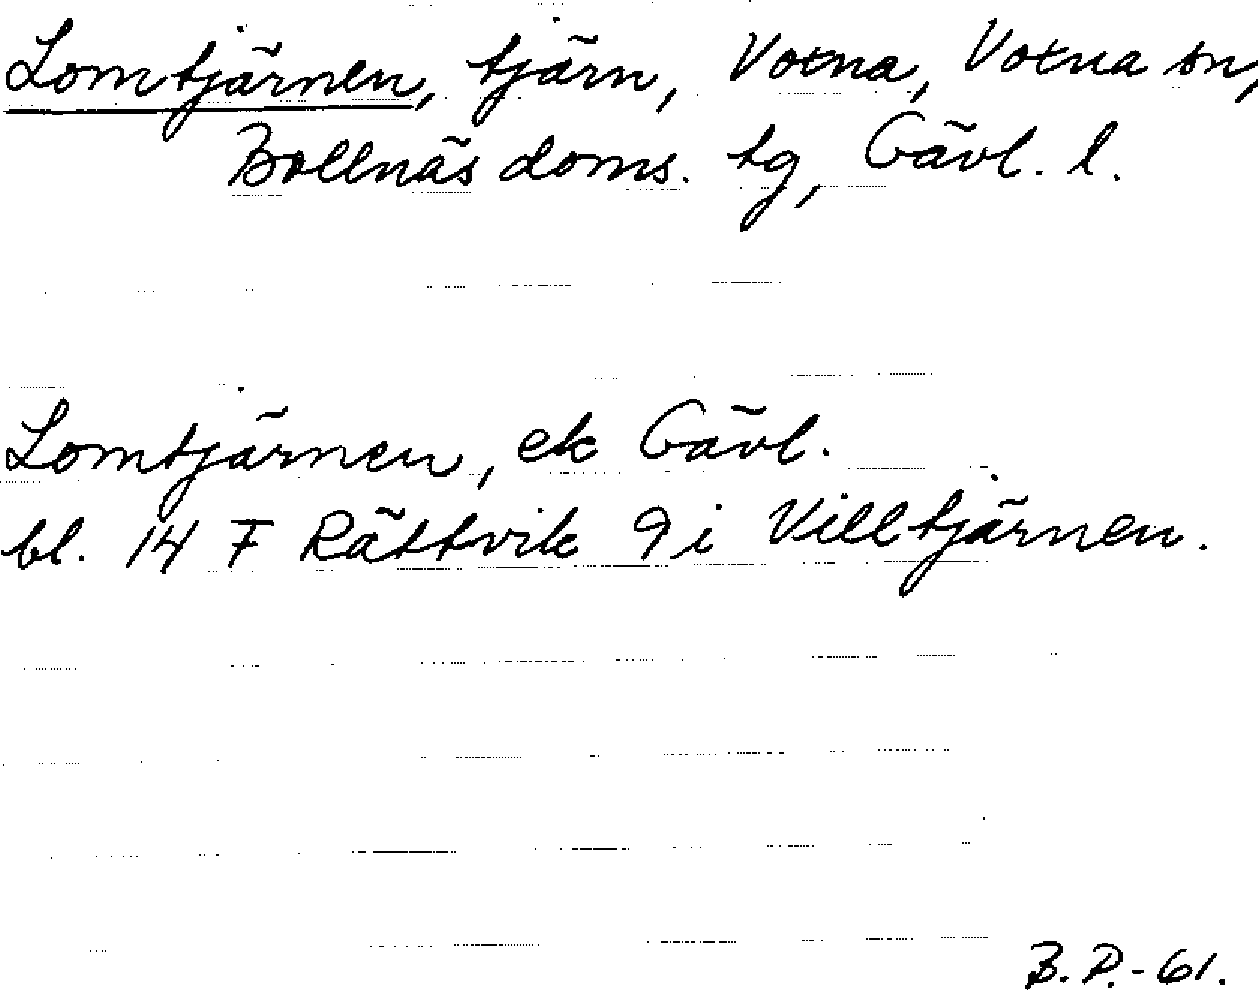 Lomtjärnen, tjärn, Voxna, Voxna sn,
Bollnäs doms. tg, Gävl. l.
Lomtjärnen, ek Gävl.
bl. 14 F Rättvik 9 i Villtjärnen.
B. P. - 61.